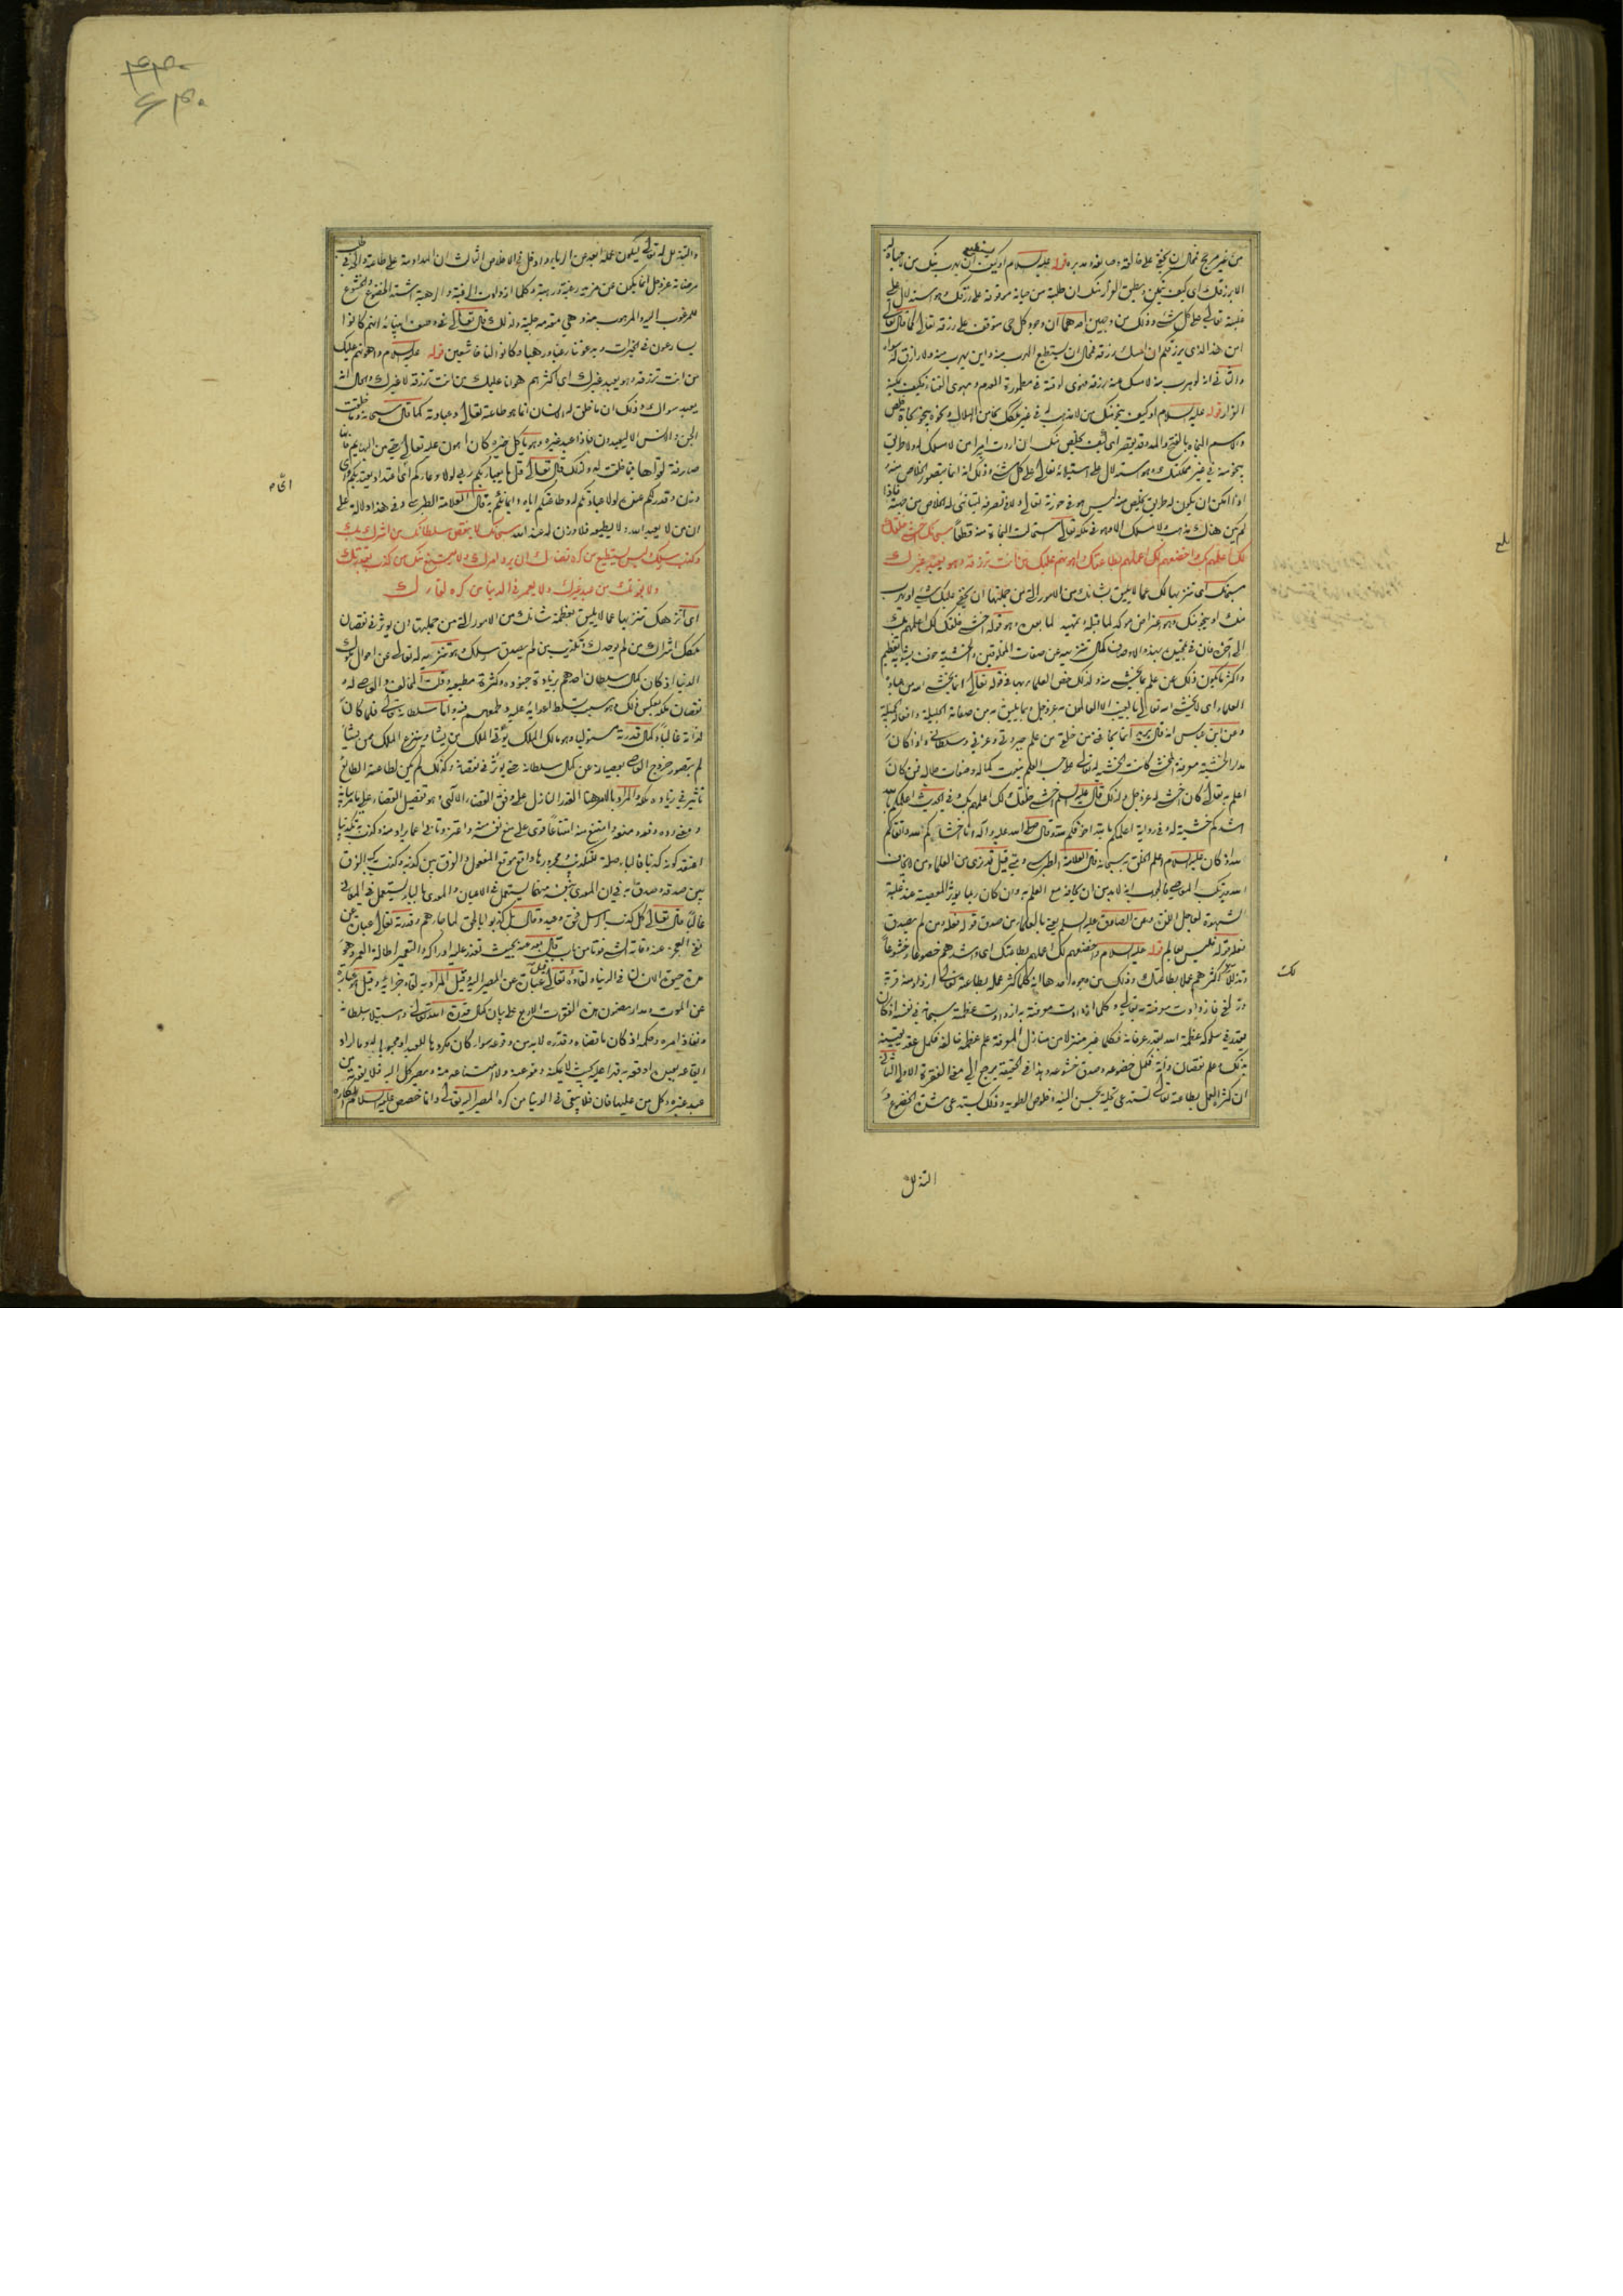 من غير مرجح فمحال ان يخفى على خالقه وصانعه ومدبره قوله عليه السلام او كيف يستطيع ان يهرب منك من لا حياة له
الا برزقك اى كيف يتمكن ويطيق الفرار منك ان طلبه من حياته موقوفة على رزقك وهو استدلال على
غلبته تعالى على كل شئ وذلك من وجهين احدهما ان وجود كل حى متوقف على رزقه تعالى كما قال تعالى
امن هذا الذى يرزقكم ان امسك رزقه فمحال ان يستطيع الهرب منه واين يهرب منه ولا رازق له سواه
والثانى انه لو هرب منه لامسك عنه رزقه فهوى لوقته فى مطمورة العدم ومهوى الفناء فكيف يمكنه
الفرار قوله عليه السلام او كيف ينجو منك من لا مذهب له فى غير ملكك نجا من الهلاك ونحوه ينجو نجاة خلص
والاسم النجاء بالفتح والمد وقد يقصر اى كيف يخلص منك ان اردت امرا من لا مسلك له ولا طريق
ينجو منه فى غير مملكتك وهو استدلال على استيلائه تعالى على كل شئ وذلك انه انما يتصور الخلاص منه
اذا امكن ان يكون له طريق يخلص منه ليس هو فى حوزته تعالى ولا فى تصرفه ليتأتى له الخلاص من جهته فاذا
لم يكن هناك مذهب ولا مسلك الا وهو فى ملكه تعالى استحالت النجاة منه قطعا سبحانك اخشى خلقك
لك اعلمهم بك واخضعهم لك اعملهم بطاعتك واهونهم عليك من انت ترزقه وهو يعبد غيرك
سبحانك اى تنزيها لك عما لا يليق بشانك من الامور التى من جملتها ان يخفى عليك شئ او يهرب
منك او ينجو منك وهو اعتراض موكد لما قبله وتمهيد لما بعده وهو قوله اخشى خلقك لك اعلمهم بك
الى آخره فان فى تعجيب بهذه الاوصاف كمال تنزيهه عن صفات المخلوقين والخشية خوف يشوبه تعظيم
واكثر ما يكون ذلك عن علم بما يخشى منه ولذلك خص العلماء بها فى قوله تعالى انما يخشى الله من عباده
العلماء اى لا يخشى الله تعالى بالغيب الا العالمون به عز وجل وبما يليق به من صفاته الجليلة وافعاله الجميلة
وعن ابن عباس انه قال يريد انما يخافنى من خلقى من علم جبروتى وعزتى وسلطانى واذا كان
مدار الخشية معرفة المخشى كانت الخشية له تعالى على حسب العلم بنعوت كماله وصفات جلاله فمن كان
اعلم به تعالى كان اخشى له عز وجل ولذلك قال عليه السلم اخشى خلقك لك اعلمهم بك وفى الحديث اعلمكم بالله
اشدكم خشية له وفى رواية اعلمكم بالله اخوفكم منه وقال صلى الله عليه وآله انا اخشاكم لله واتقاكم
له اذ كان عليه السلام اعلم الخلق به سبحانه قال العلامة الطبرسى ومتى قيل قد نرى من العلماء من لا يخاف
الله ويرتكب المعاصى فالجواب انه لا بد من ان يخافه مع العلم به وان كان ربما يؤثر المعصية عند غلبة
الشهوة لعاجل اللذة وعن الصادق عليه السلم يعنى بالعلماء من صدق قوله فعله ومن لم يصدق
فعله قوله فليس بعالم قوله عليه السلام واخضعهم لك اعملهم بطاعتك اى واشدهم خضوعا وخشوعا
وتذللا لك اكثرهم عملا بطاعتك وذلك من وجوه احدها انه كلما كثر عمله بطاعته تعالى ازداد منه قربة
وزلفى فازدادت معرفته به تعالى وكلما ازدادت معرفته به ازدادت عظمته سبحانه فى نفسه اذ كان
يقدر فى سلوكه عظمة الله بقدر عرفانه فكلما عبر منزلا من منازل المعرفة علم عظمة خالقه فكمل عقد يقينه
بذلك وعلم نقصان ذاته فكمل خضوعه وصدق خشوعه وهذا فى الحقيقة يرجع الى معنى الفقرة الاولى الثانى
ان كثرة العمل بطاعته تعالى تستدعى تحلية بحسن النية وخلوص الطوية وذلك يستدعى شدة الخضوع و
التذلل
لك
والنية بل له تعالى ليكون عمله ابعد عن الرياء وادخل فى الاخلاص الثالث ان المداومة على طاعته والجد فى طلب
مرضاته عز وجل انما يكون عن مزيد رغبة ورهبة وكلما ازدادت الرغبة والرهبة اشتد الخضوع والخشوع
للمرغوب اليه والمرهوب منه وهى مقدمة جلية ولذلك قال تعالى فى وصف انبيائه انهم كانوا
يسارعون فى الخيرات ويدعوننا رغبا ورهبا وكانوا لنا خاشعين قوله عليه السلام واهونهم عليك
من انت ترزقه وهو يعبد غيرك اى اكثرهم هوانا عليك من انت ترزقه لا غيرك والحال انه
يعبد سواك وذلك ان ما خلق له الانسان انما هو طاعته تعالى وعبادته كما قال سبحانه وما خلقت
الجن والانس الا ليعبدون فاذا عبد غيره وهو ياكل خيره كان اهون عليه تعالى حتى من البهايم فانها
صارفة لقواها فيما خلقت له ولذلك قال تعالى قل ما يعبأ بكم ربى لولا دعاؤكم اى اعتداد يعتد بكم واى
وزن وقدر لكم عنده لولا عبادتكم له وطاعتكم اياه وايمانكم به قال العلامة الطبرسى وفى هذا دلالة على
ان من لا يعبد الله ولا يطيعه فلا وزن له عند الله سبحانك لا ينقص سلطانك من اشرك بك
وكذب رسلك وليس يستطيع من كره قضاءك ان يرد امرك ولا يمتنع منك من كذب بقدرتك
ولا يفوتك من عبد غيرك ولا يعمر فى الدنيا من كره لقاءك
اى انزهك تنزيها عما لا يليق بعظمة شانك من الامور التى من جملتها ان يوثر فى نقصان
ملكك اشراك من لم يوحدك وتكذيب من لم يصدق رسلك وهو تنزيه له تعالى عن احوال ملوك
الدنيا اذ كان كمال سلطان احدهم بزيادة جنوده وكثرة مطيعيه وقلة المخالف والعاصى له و
نقصان ملكه بعكس ذلك وهو سبب تسلط اعدائه عليه وطمعهم فيه واما سلطانه تعالى فلما كان
لذاته غالبا وكمال قدرته مستوليا وهو مالك الملك يؤتى الملك من يشاء وينزع الملك ممن يشاء
لم يتصور خروج العاصى بعصيانه عن كمال سلطانه حتى يوثر فى نقصانه وكذلك لم يكن لطاعة الطائع
تأثير فى زيادة ملكه والمراد بالامر هنا القدر النازل على وفق القضاء الالهى وهو تفصيل القضاء
اعتقد كونه كذبا فالباء صلة
بين صدقه وصدق به فى ان المعدى بنفسه منهما يستعمل فى الاعيان والمعدى بالباء يستعمل فى المعانى
غالبا قال تعالى كل كذب الرسل فحق وعيد وقال بل كذبوا بالحق لما جاءهم وقدرته تعالى عبارة عن
نفى العجز عنه وفاته الشئ فوتا من باب قال بعد منه بحيث تعذر عليه ادراكه والتعمير اطالة العمر وهو
مدة حيوة الانسان فى الدنيا ولقاؤه تعالى قيل عبارة عن المصير اليه وقيل المراد به لقاء جزائه وقيل عبارة
عن الموت ومدار مضمون هذه الفقرات الاربع على بيان كمال قدرة الله تعالى واستيلاء سلطانه
ونفاذ امره وحكمه اذ كان ما قضاه وقدره لا بد من وقوعه سواء كان مكروها للعبد او محبوبا له وما اراد
ايقاعه بعين او اوقعه به قدرا عليه كيف لا يمكنه دفعه عنه ولا امتناعه منه ومصير كل اليه فلا يفوته من
عبد غيره وكل من عليها فان فلا يبقى فى الدنيا من كره المصير اليه تعالى وانما خصص عليه السلام